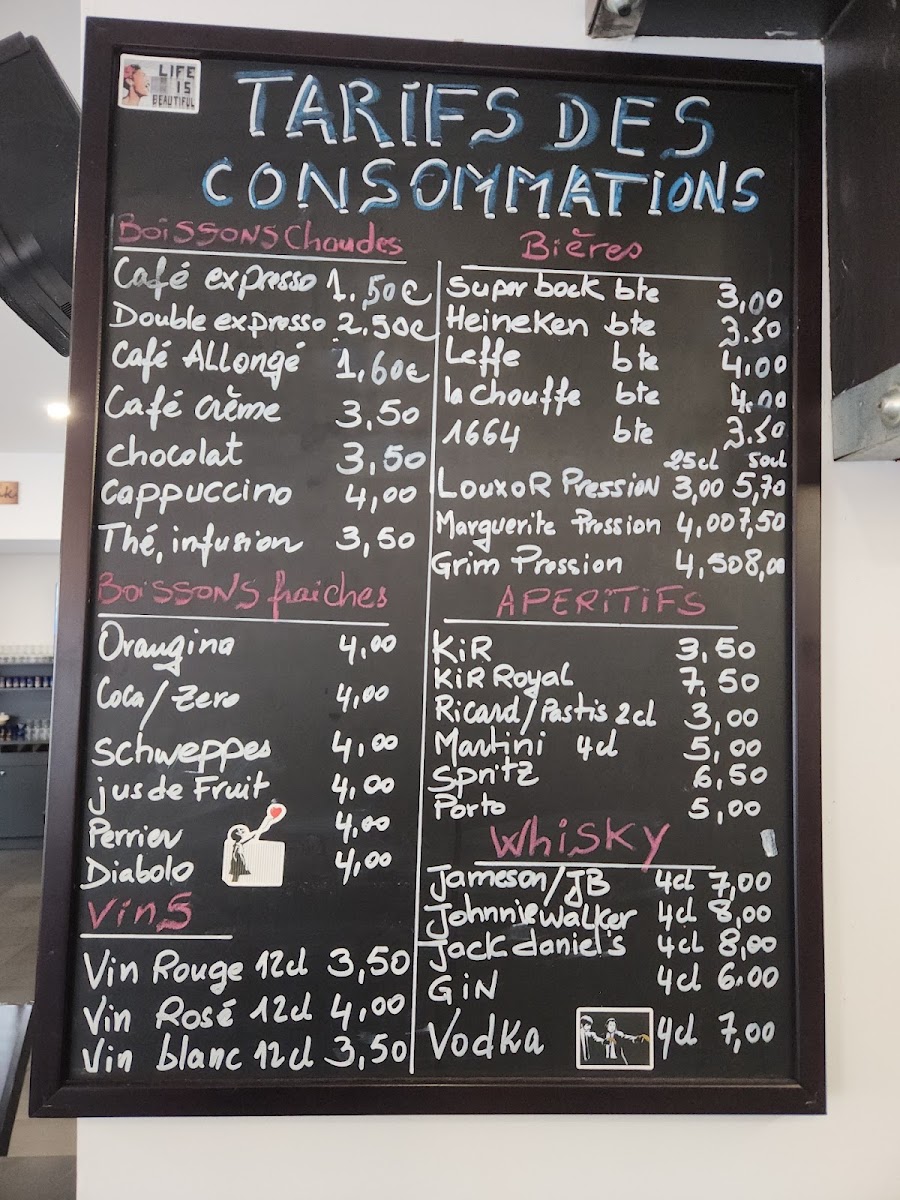 LIFE
IS
BEAUTIFUL
TARIFS DES
CONSOMMATIONS
BoiSSONS Chaudes
Café expresso 1,50€
Double expresso 2,50€
Café Allongé 1,60€
Café crème 3,50
chocolat 3,50
Cappuccino 4,00
Thé, infusion 3,50
BoiSSONS fraiches
Orangina 4,00
Coca/Zero 4,00
Schweppes 4,00
jus de Fruit 4,00
Perrier 4,00
Diabolo 4,00
VinS
Vin Rouge 12cl 3,50
Vin Rosé 12cl 4,00
Vin blanc 12cl 3,50
Bières
Super bock bte 3,00
Heineken bte 3.50
Leffe bte 4.00
la chouffe bte 4.00
1664 bte 3.50
25cl 50cl
LouxoR Pression 3,00 5,70
Marguerite Pression 4,00 7,50
Grim Pression 4,50 8,00
APERITIFS
KiR 3,50
KiR Royal 7,50
Ricard/Pastis 2cl 3,00
Martini 4cl 5,00
Spritz 6,50
Porto 5,00
WhiSKy
Jameson/JB 4cl 7,00
Johnniewalker 4cl 8,00
Jack daniel's 4cl 8,00
GiN 4cl 6.00
Vodka 4cl 7,00